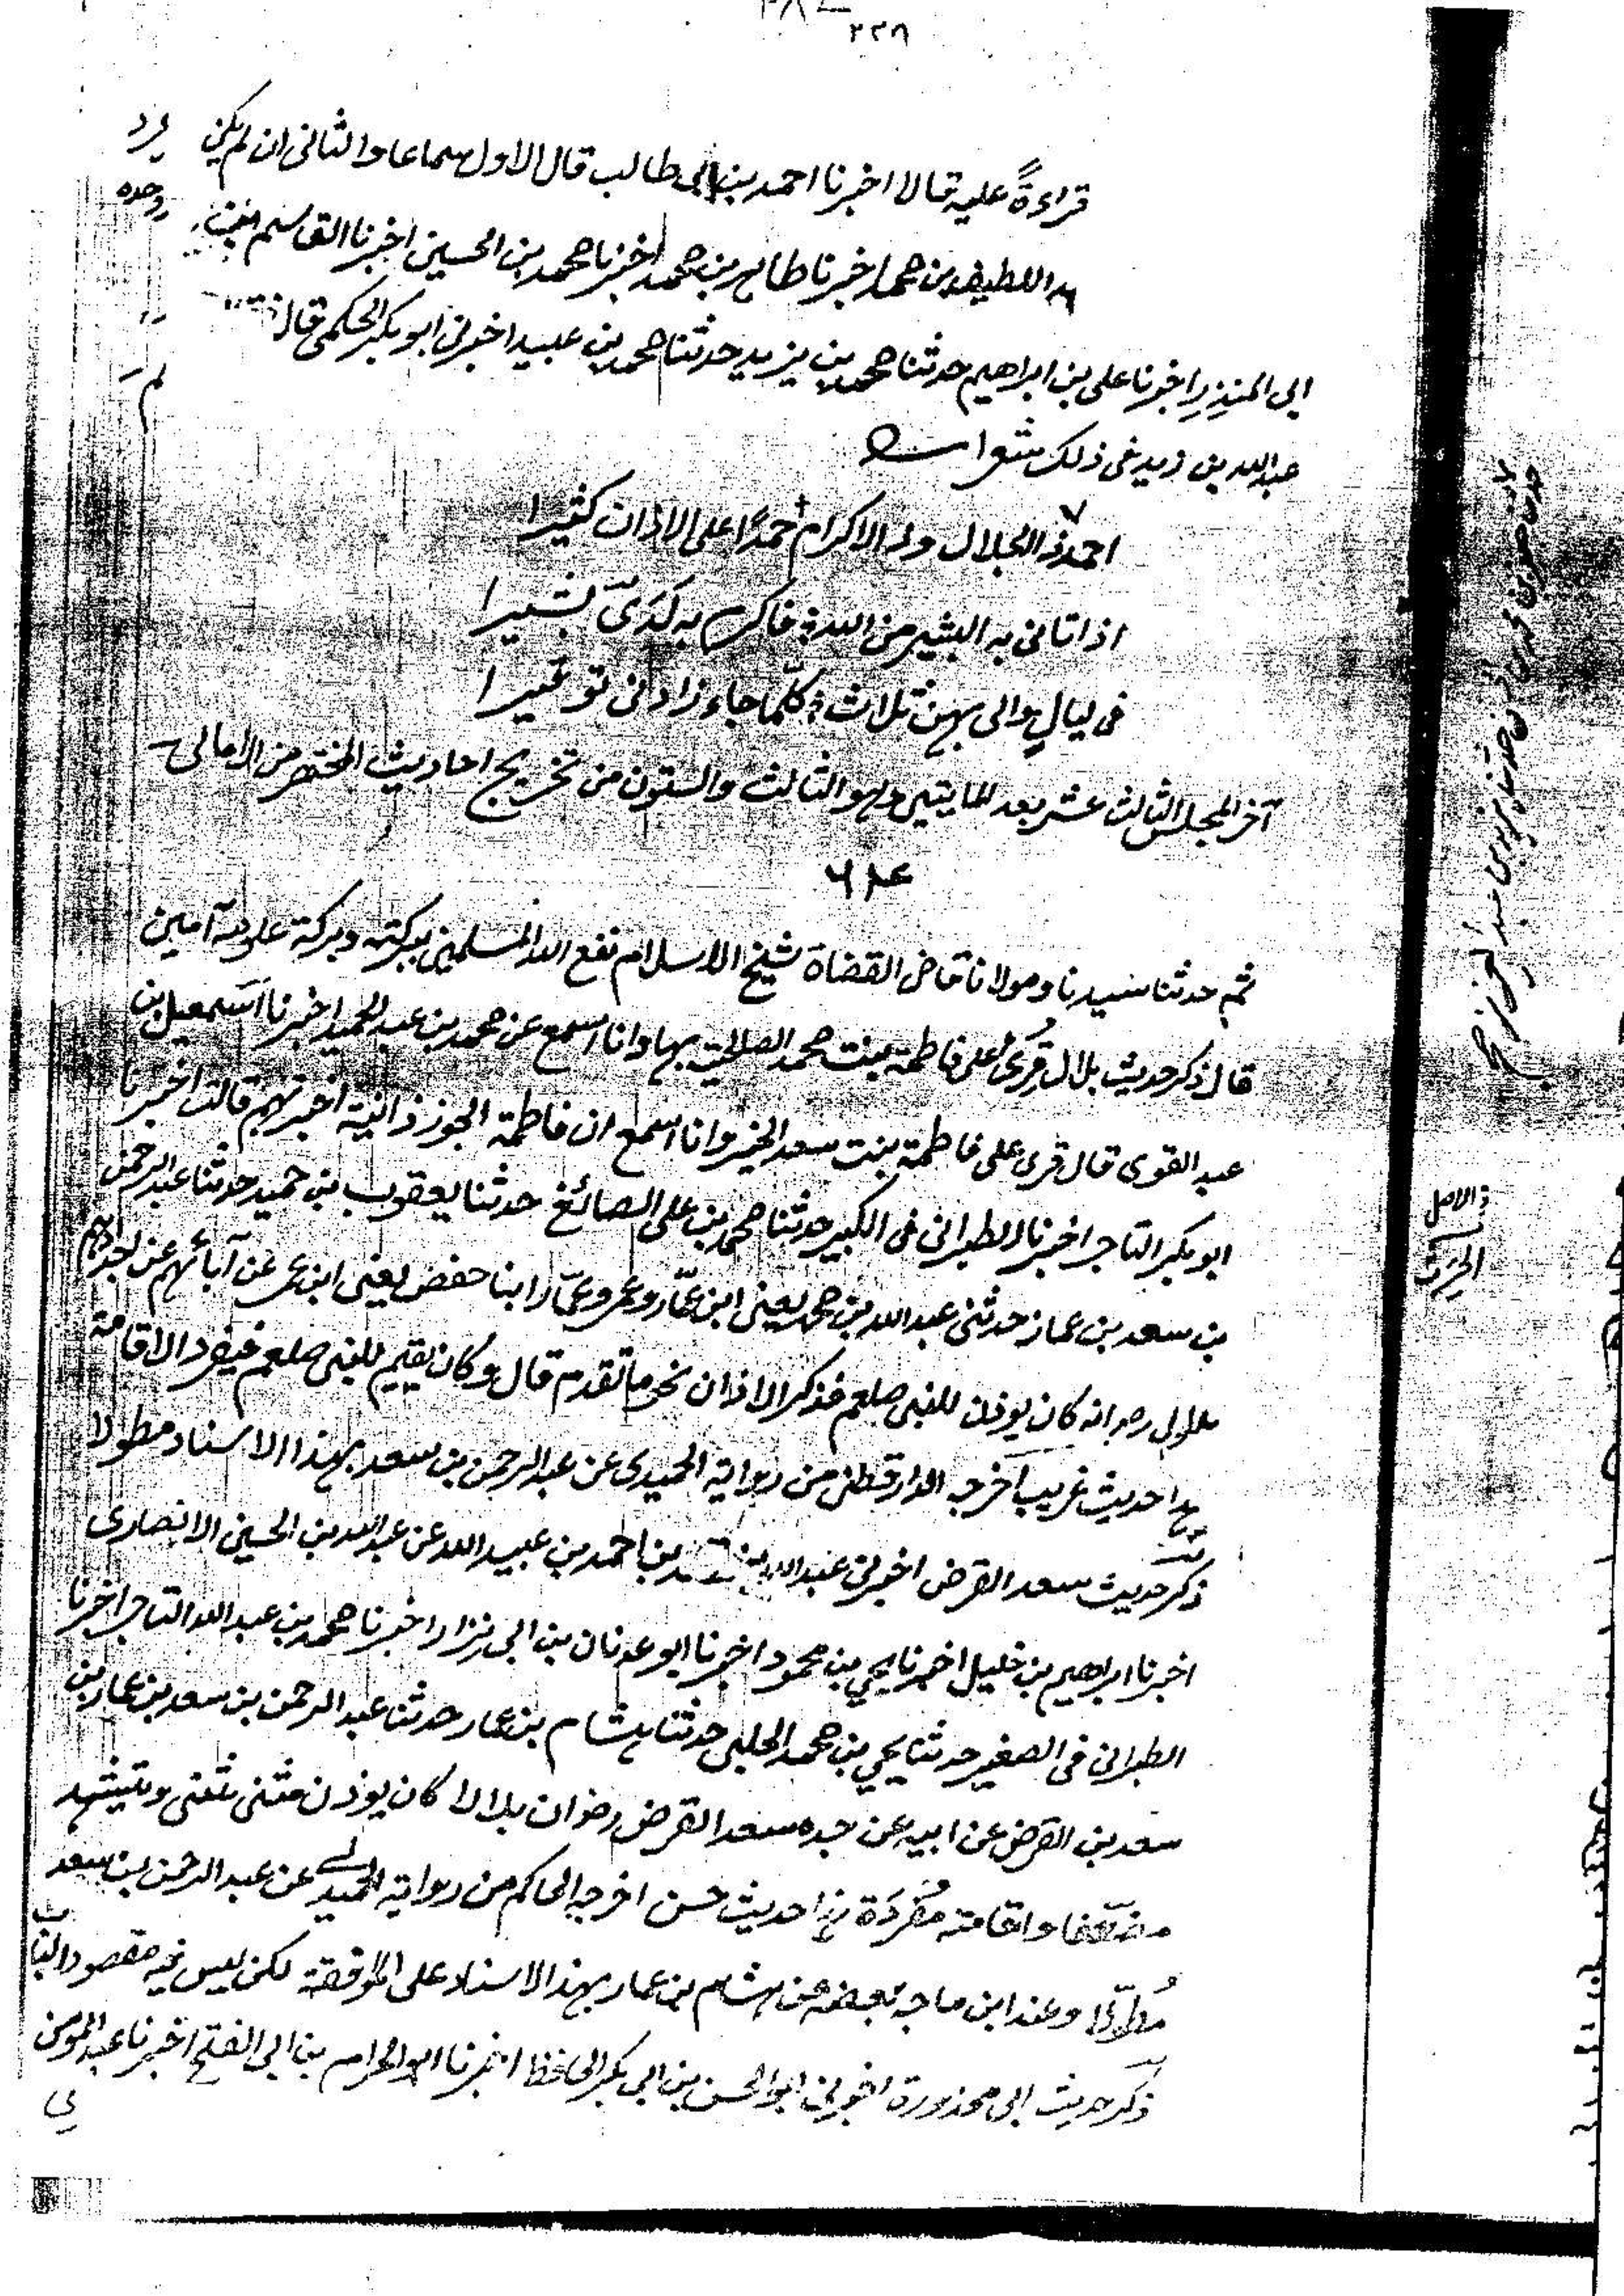 ٢٢٨
قراءةً عليه قالا اخبرنا احمد بن ابى طالب قال الاول سماعا والثانى ان لم يكن
اللطيف بن محمد اخبرنا طاهر بن محمد اخبرنا محمد بن الحسين اخبرنا القاسم بن
ابى المنذر اخبرنا على بن ابراهيم حدثنا محمد بن يزيد حدثنا محمد بن عبيد اخبرنى ابو بكر الحكمى قال
عبد الله بن زيد فى ذلك شعرا
احمد ذا الجلال وذا الاكرام حمدًا على الاذان كثيرا
اذ اتانى به البشير من الله فاكرم به لدىّ بشيرا
فى ليالٍ والى بهن ثلاث كلّما جاء زادنى توقيرا
آخر المجلس الثالث عشر بعد المايتين وهو الثالث والستون من تخريج احاديث المختصر من الامالى
ثم حدثنا سيدنا ومولانا قاضى القضاة شيخ الاسلام نفع الله المسلمين ببركته وبركة علومه آمين
قال ذكر حديث بلال قُرئ على فاطمة بنت محمد الصالحية بها وانا اسمع عن محمد بن عبد الحميد اخبرنا اسمعيل بن
عبد القوى قال قرى على فاطمة بنت سعد الخير وانا اسمع ان فاطمة الجوزذانية اخبرتهم قالت اخبرنا
ابو بكر التاجر اخبرنا الطبرانى فى الكبير حدثنا محمد بن على الصائغ حدثنا يعقوب بن حميد حدثنا عبد الرحمن
بن سعد بن عمار حدثنى عبد الله بن محمد يعنى ابن عمّار وعمر وعمّار ابنا حفص يعنى ابن عمر عن آبائهم عن اجدادهم
بلال رضى انه كان يوذن للنبى صلعم فذكر الاذان نحو ما تقدم قال وكان يقيم للنبى صلعم فيفرد الاقامة
هذا حديث غريب اخرجه الدارقطنى من رواية الحميدى عن عبد الرحمن بن سعد بهذا الاسناد مطولا
ذكر حديث سعد القرض اخبرنى عبد الله بن بن احمد بن عبيد الله عن عبد الله بن الحسين الانصارى
اخبرنا ابراهيم بن خليل اخبرنا يحيى بن محمود اخبرنا ابو عدنان بن ابى نزار اخبرنا محمد بن عبد الله التاجر اخبرنا
الطبرانى فى الصغير حدثنا يحيى بن محمد الحلبى حدثنا هشام بن عمار حدثنا عبد الرحمن بن سعد بن عمار بن
سعد بن القرض عن ابيه عن جده سعد القرض رضى ان بلالا كان يوذن مثنى مثنى ويتشهد
مضعّفا واقامته مُفرَدَة هذا حديث حسن اخرجه الحاكم من رواية الحميدى عن عبد الرحمن بن سعد
مُطوّلا وعند ابن ماجه بعضه عن هشام بن عمار بهذا الاسناد على الموافقة لكن ليس فيه مقصود الباب
ذكر حديث ابى محذورة اخبرنى ابو الحسن بن ابى بكر الحافظ اخبرنا ابو الحرام بن ابى الفتح اخبرنا عبد المومن
الاصل